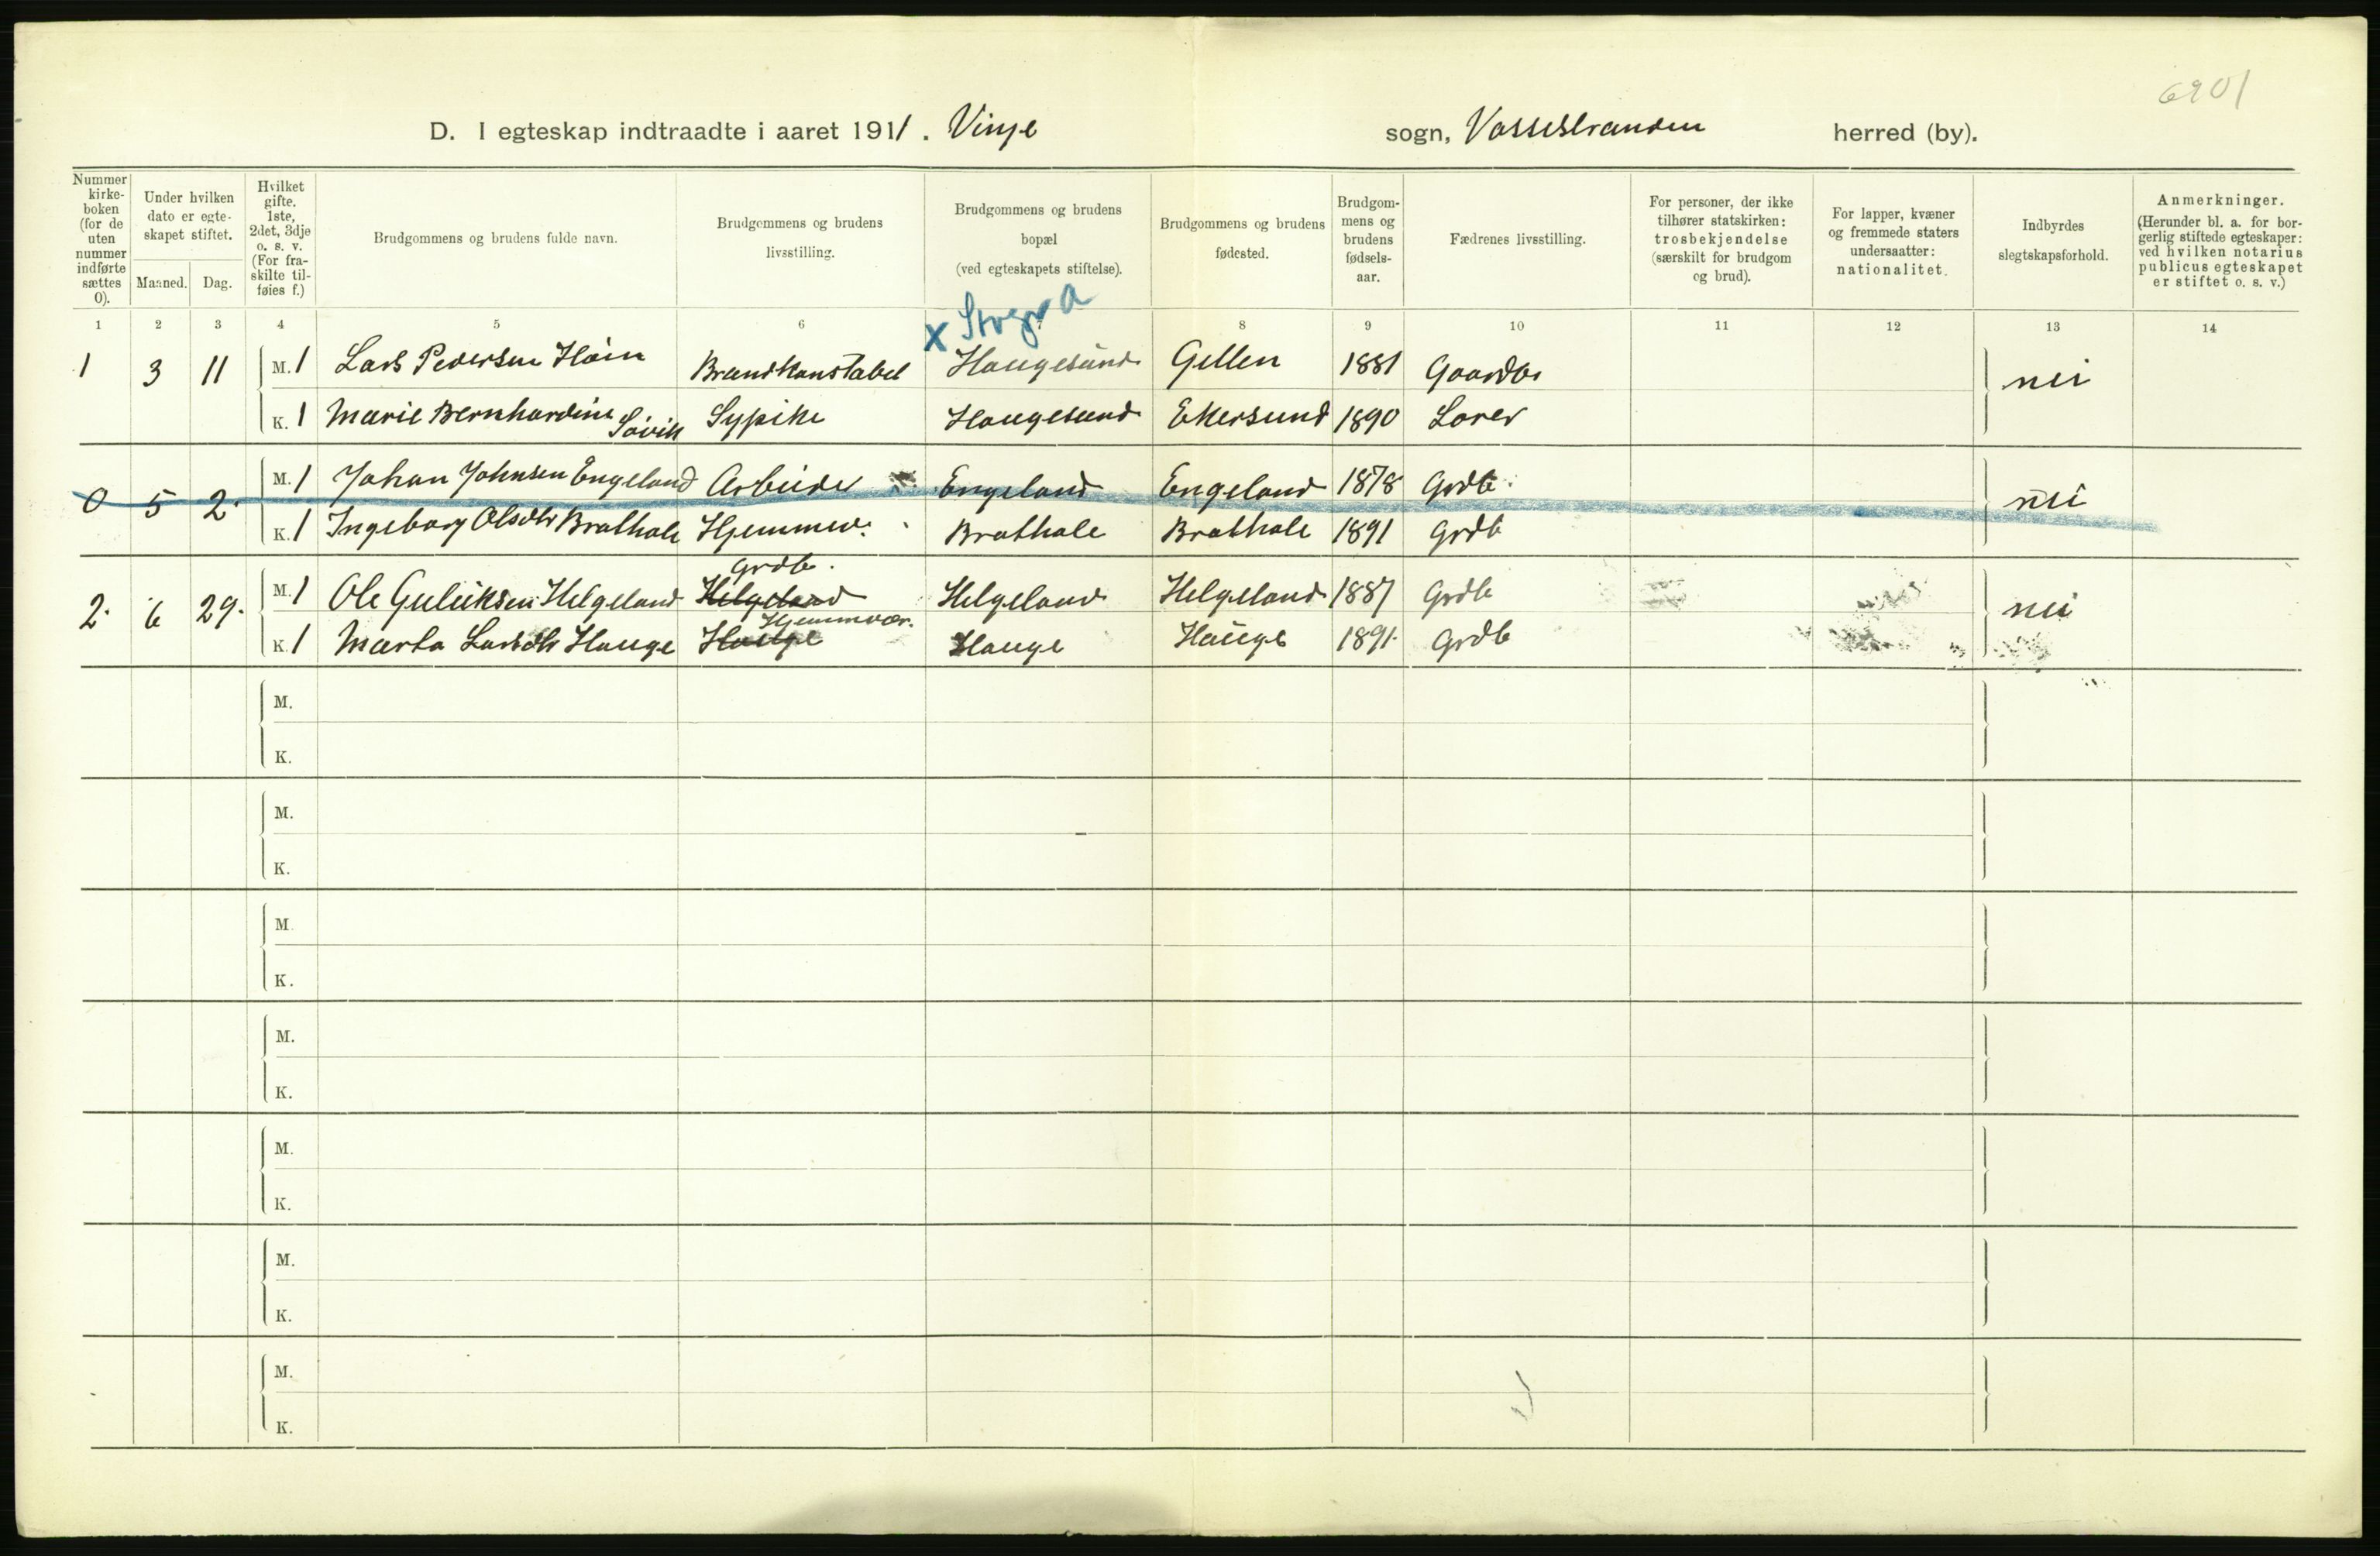 6901
D. I egteskap indtraadte i aaret 1911. Vinje sogn, Vossestranden herred (by).
Nummer kirke-boken (for de uten nummer indførte sættes 0).
Under hvilken dato er egte-skapet stiftet.
Maaned. Dag.
Hvilket gifte. 1ste, 2det, 3dje o. s. v. (For fra-skilte til-føies f.)
Brudgommens og brudens fulde navn.
Brudgommens og brudens livsstilling.
Brudgommens og brudens bopæl (ved egteskapets stiftelse).
Brudgommens og brudens fødested.
Brudgom-mens og brudens fødsels-aar.
Fædrenes livsstilling.
For personer, der ikke tilhører statskirken: trosbekjendelse (særskilt for brudgom og brud).
For lapper, kvæner og fremmede staters undersaatter: nationalitet.
Indbyrdes slegtskapsforhold.
Anmerkninger. (Herunder bl. a. for bor-gerlig stiftede egteskaper: ved hvilken notarius publicus egteskapet er stiftet o. s. v.)
1 2 3 4 5 6 7 8 9 10 11 12 13 14
x
1 3 11 M. 1 Lars Pedersen Høin Brandkonstabel Haugesund Gullen 1881 Gaardbr nei
K. 1 Marie Bernhardine Søvik Sypike Haugesund Ekersund 1890 Lærer
0 5 2. M. 1 Johan Johnsen Engeland Arbeider Engeland Engeland 1878 Grdb. nei
K. 1 Ingeborg Olsdtr Brathole Hjemmev. Brathole Brathole 1891 Grdb
Grdb.
2. 6 29. M. 1 Ole Guleiksen Helgeland Helgeland Helgeland Helgeland 1887 Grdb nei
Hjemmevær.
K. 1 Marta Larsdtr Hauge Hauge Hauge Hauge 1891 Grdb
M.
K.
M.
K.
M.
K.
M.
K.
M.
K.
M.
K.
M.
K.